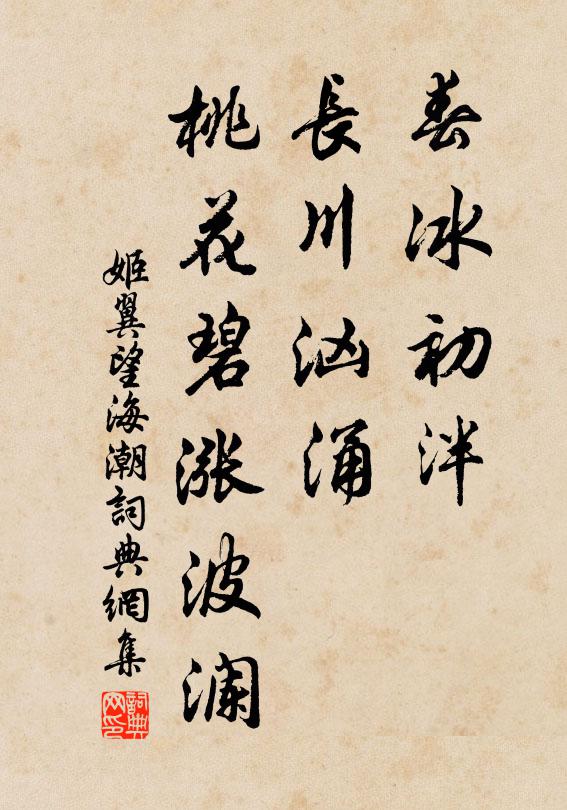 春冰初泮
長川汹涌
桃花碧涨波澜
姬翼望海潮詞典網集
詞典网印